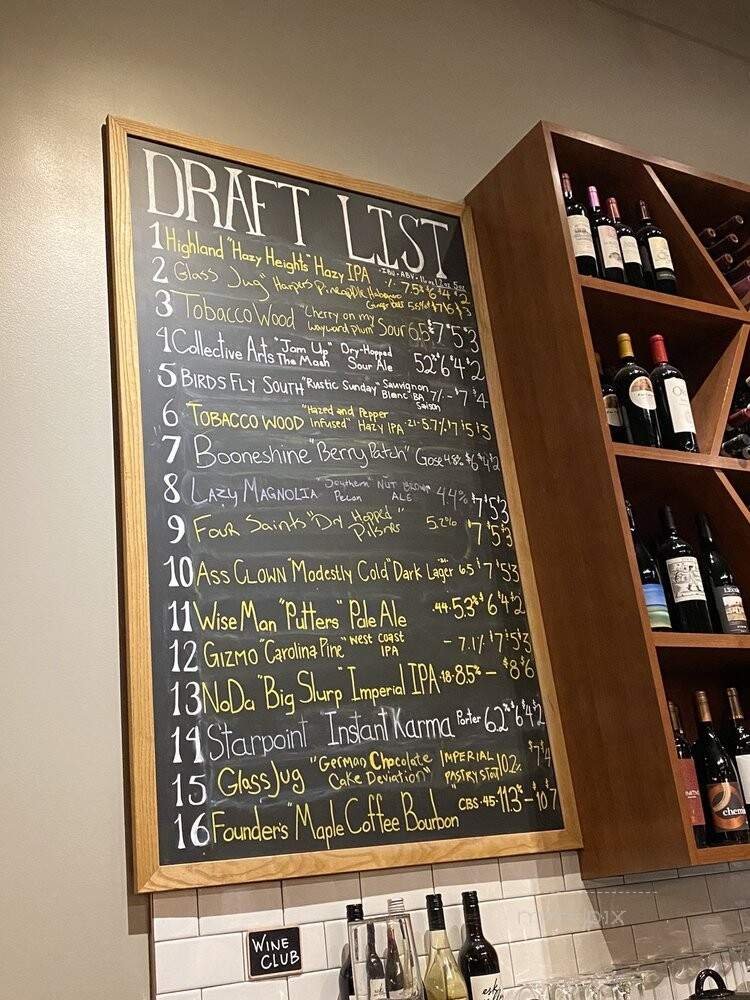 DRAFT LIST
·IBU·ABV·16oz 12oz 5oz
1 Highland "Hazy Heights" Hazy IPA ·/· 7.5% $6 $4 $2
2 Glass Jug "Harpers Pineapple Habanero
Ginger Beer 5.5% $7 $5 $3
3 Tobacco Wood "Cherry on my
wayward plum" Sour 6.5 $7 $5 $3
4 Collective Arts "Jam Up Dry-Hopped
The Mash Sour Ale 5.2% $6 $4 $2
5 BIRDS FLY SOUTH "Rustic Sunday - Sauvignon
Blanc BA 7/·-$7 $4
Saison
6 TOBACCO WOOD "Hazed and Pepper
Infused" Hazy IPA ·21·5.7% $7 $5 $3
7 Booneshine "Berry Patch" Gose 4.8% $6 $4 $2
8 LAZY MAGNOLIA "Southern NUT BROWN
Pecan ALE 4.4% $7 $5 $3
9 Four Saints "Dry Hopped"
Pilsner 5.2% $7 $5 $3
10 ASS CLOWN "Modestly Cold" Dark Lager 6.5 $7 $5 $3
11 Wise Man "Putters" Pale Ale ·44·5.3% $6 $4 $2
12 GIZMO "Carolina Pine" West Coast
IPA - 7.1% $7 $5 $3
13 NoDa "Big Slurp" Imperial IPA ·18·8.5% - $8 $6
14 Starpoint Instant Karma Porter 6.2% $6 $4 $2
15 Glass Jug "German Chocolate
Cake Deviation" IMPERIAL
PASTRY STOUT 10.2% $7 $4
16 Founder's "Maple Coffee Bourbon" CBS·45·11.3% - $10 $7
WINE
CLUB
chemi